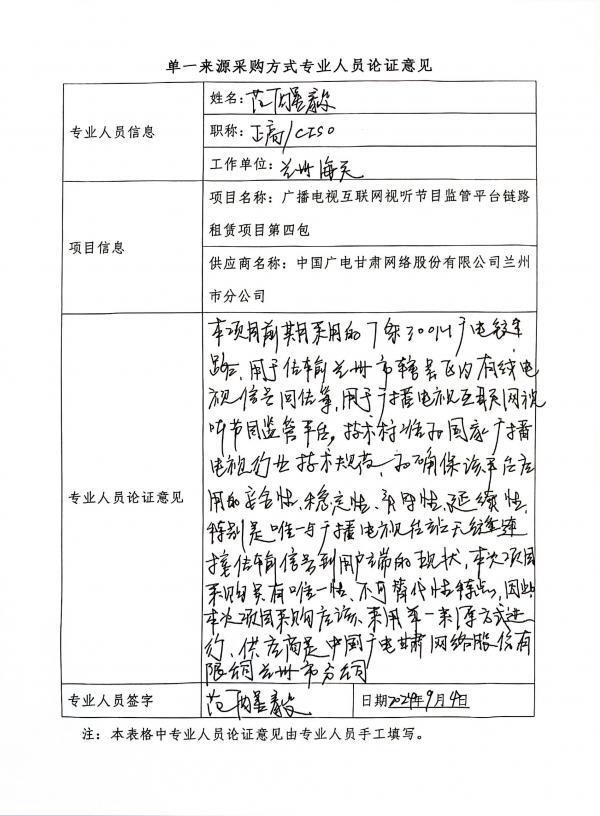 单一来源采购方式专业人员论证意见
专业人员信息
姓名：范 毅
职称：正高/CISO
工作单位：兰州海天
项目信息
项目名称：广播电视互联网视听节目监管平台链路
租赁项目第四包
供应商名称：中国广电甘肃网络股份有限公司兰州
市分公司
专业人员论证意见
本项目前期采用的7条300M广电链
路，用于传输兰州市辖县区内有线电
视信号回传等，用于广播电视互联网视
听节目监管平台，技术标准和国家广播
电视行业技术规范，和确保该平台应
用的安全性、稳定性、 性、延续性，
特别是唯一与广播电视台站无缝连
接传输信号到用户端的现状，本次项目
采购具有唯一性、不可替代性特点，因此
本次项目采购应该采用单一来源方式进
行，供应商是中国广电甘肃网络股份有
限公司兰州市分公司
专业人员签字
范 毅
日期2024年9月4日
注：本表格中专业人员论证意见由专业人员手工填写。